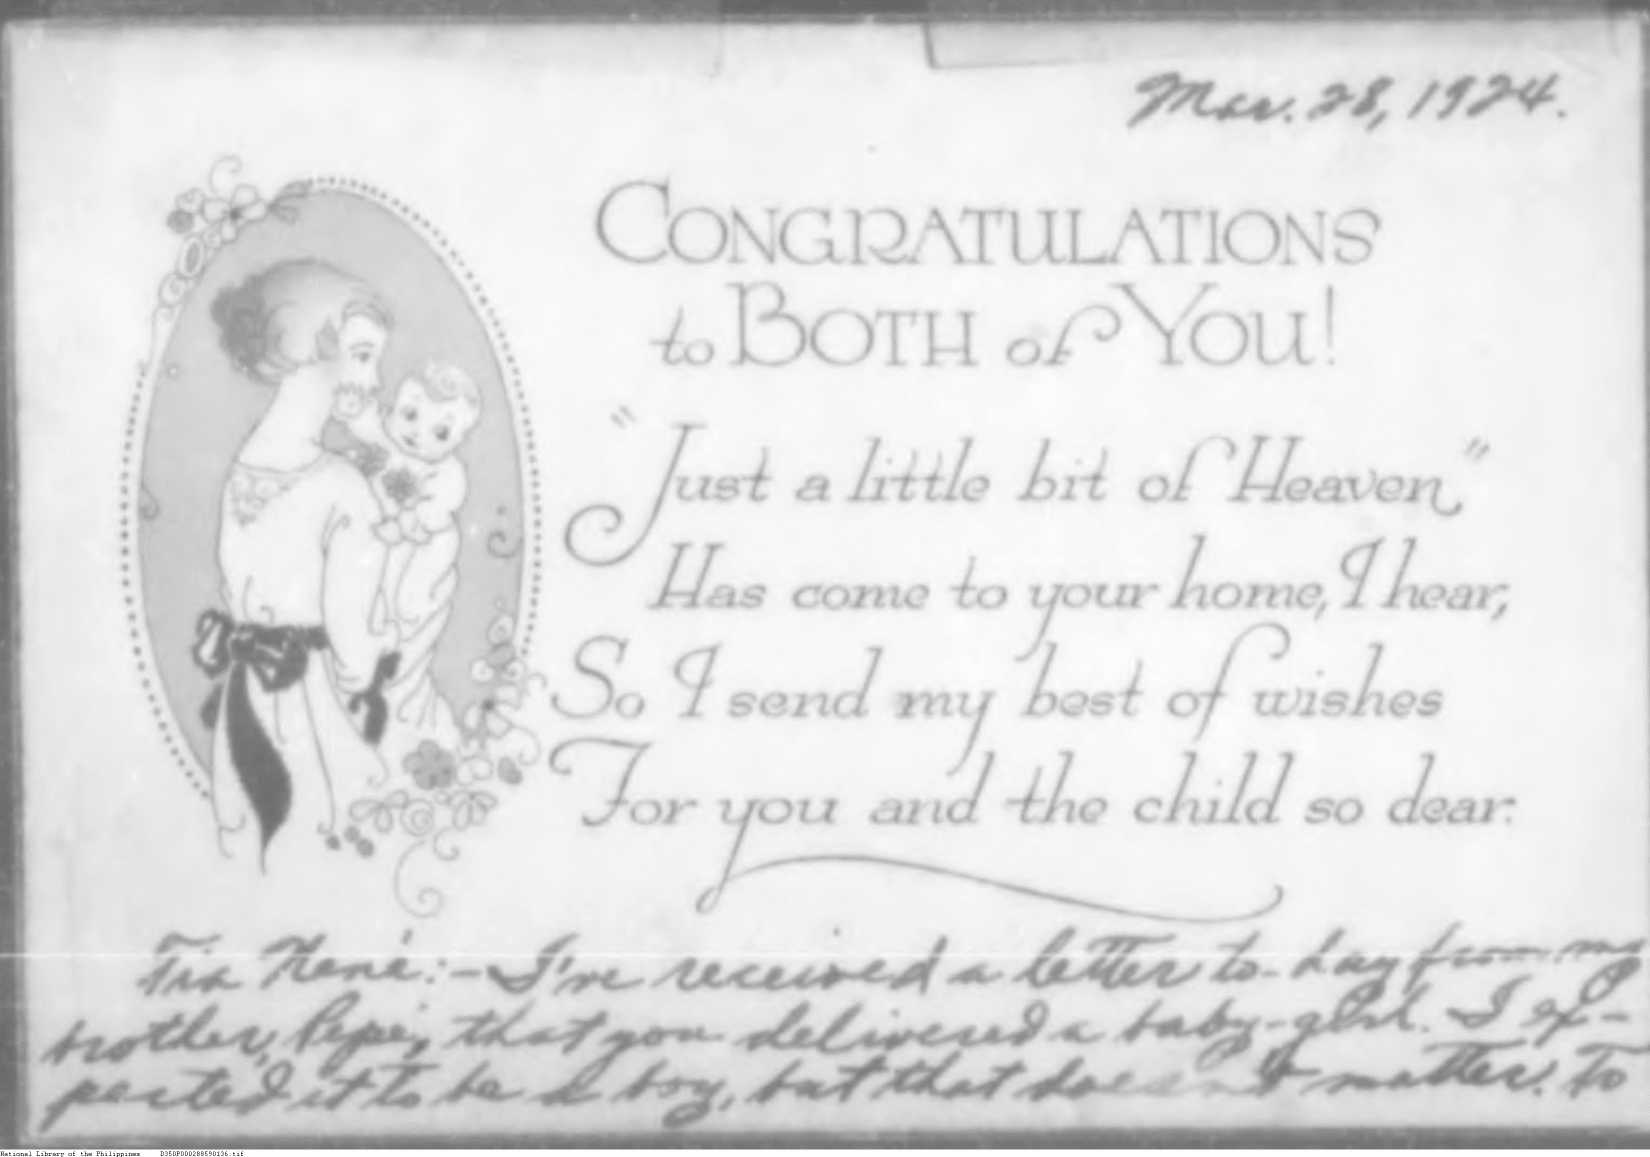 Mar. 28, 1924.
CONGRATULATIONS
to BOTH of YOU!
"Just a little bit of Heaven,"
Has come to your home, I hear,
So I send my best of wishes
For you and the child so dear.
Tia Nené:- I've received a letter to-day from my
brother, Pepe, that you delivered a baby-girl. I ex-
pected it to be a boy, but that doesn't matter. To
National Library of the Philippines D350P000288590136.tif